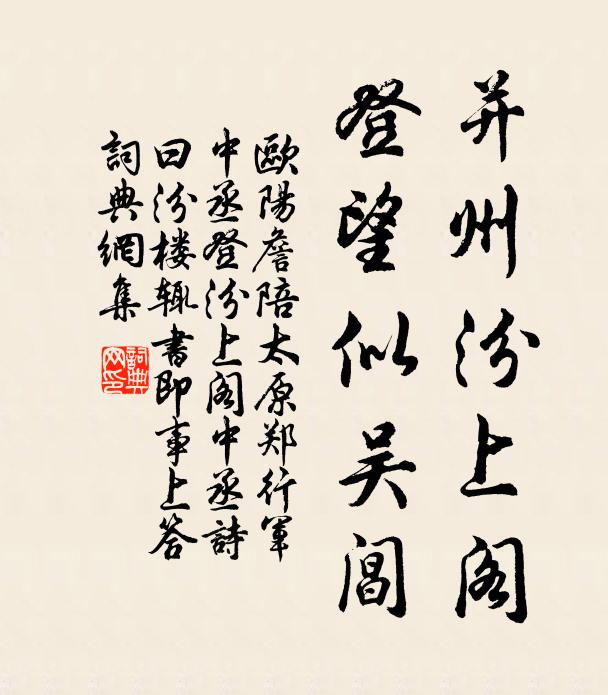 并州汾上阁
登望似吴阊
歐陽詹陪太原郑行軍
中丞登汾上阁中丞詩
曰汾楼辄書即事上答
詞典網集
詞典
网印